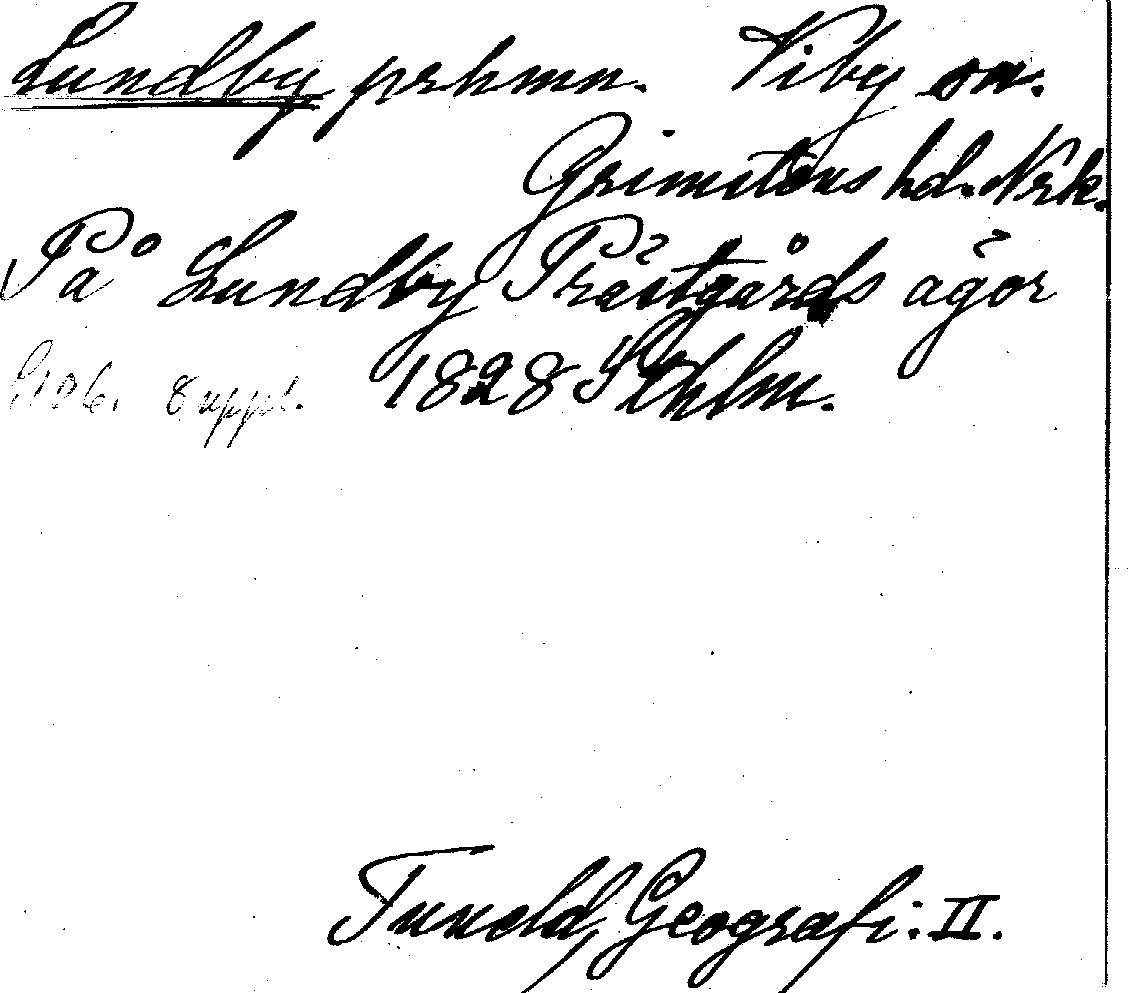 Lundby prhmn. Viby sn.
Grimstens hd. Nrk.
På Lundby Prästgårds ägor
S 106. 8 uppl. 1828 Sthlm.
Tuneld, Geografi: II.